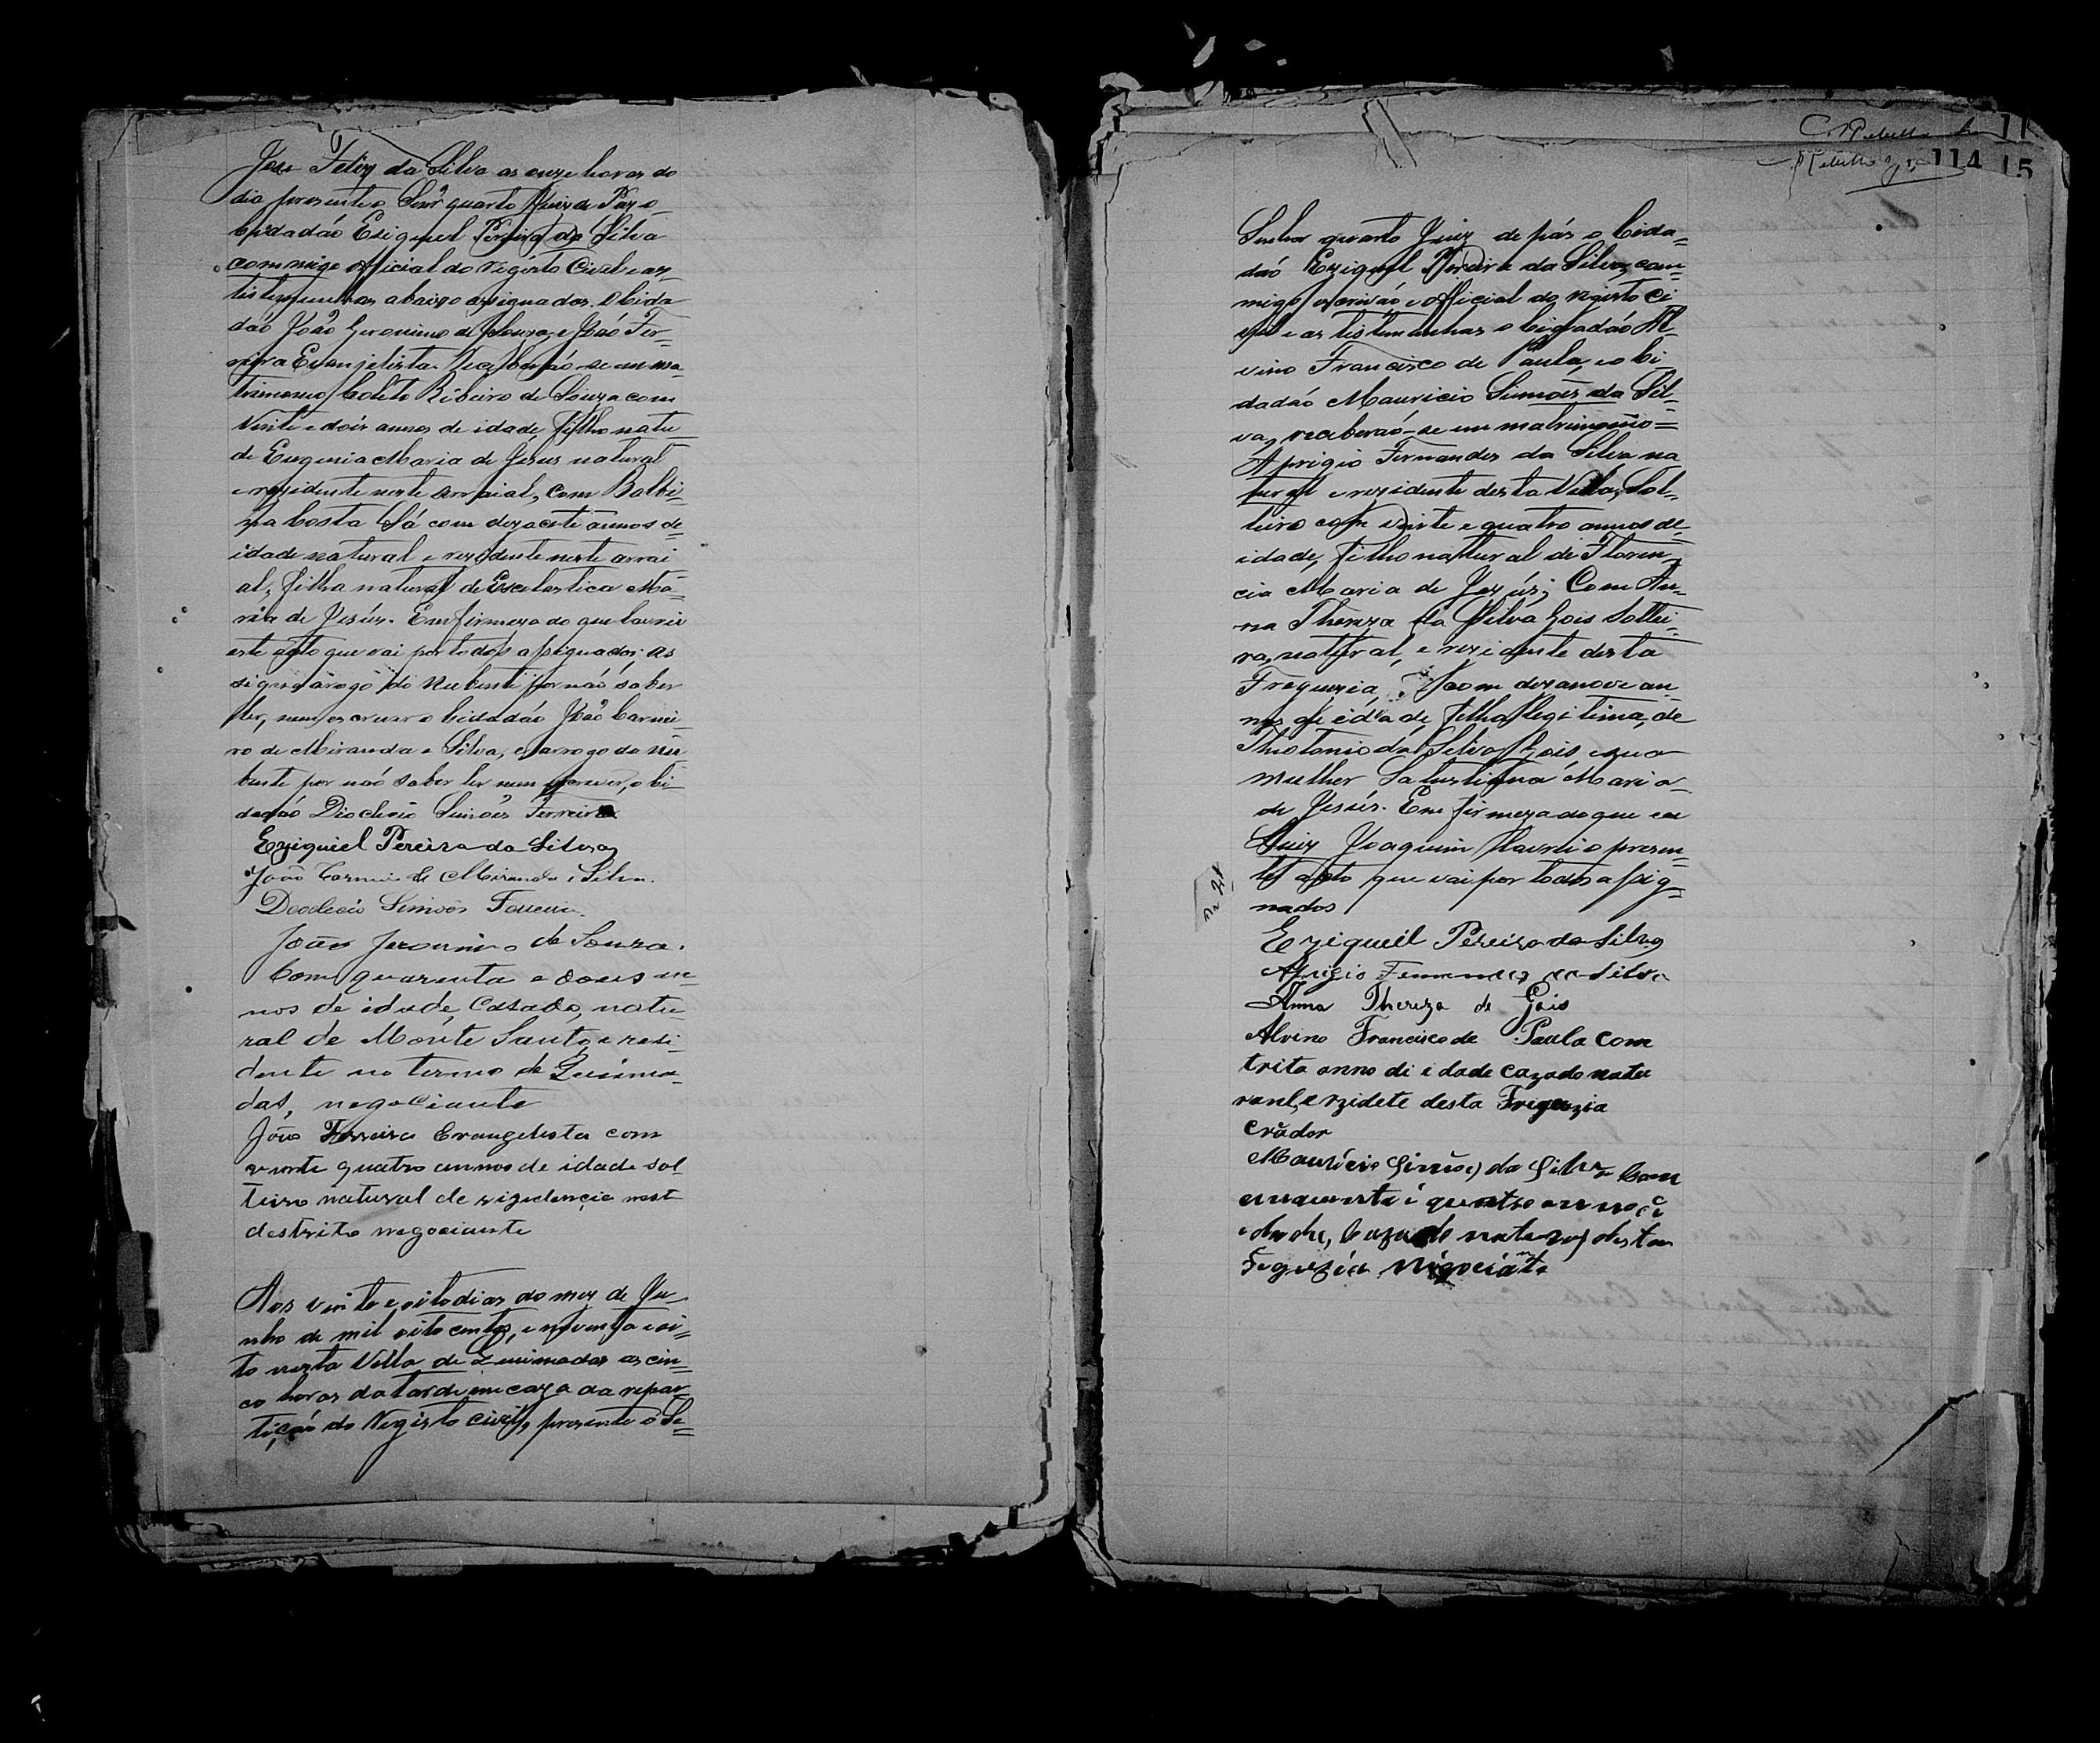 José Feliz da Silva as onze horas do
dia presente o Senr quarto Juiz de Paz o
Cidadão Esiquiel Pereira da Silva
commigo official do registo Civil e as
testemunhas abaixo assignadas. O Cida
dão João Geronimo de Souza, e João Fer-
reira Evangelista. Receberão-se em ma-
trimonio Coleto Ribeiro de Souza com
Vinte e dois annos de idade, filho natu-
de Eugenia Maria de Jesus natural
e rezidente neste arraial, com Balbi-
na Costa Sá com dezacete annos de
idade natural e rezidente neste arrai
al, filha natural de Escolastica Ma-
ria de Jesús. Em firmeza do que lavrei
este acto que vai por todos assignados; as
signa árogo do Nubente por não saber
ler, nem escrever o Cidadão João Carnei-
ro de Miranda e Silva, e a rogo da nu
bente por não saber ler nem escrever, o Ci-
dadão Dioclecio Simões Ferreira
Eziquiel Pereira da Silva
João Carneiro de Miranda e Silva.
Deoclecio Simões Ferreira.
João Jeronimo de Souza.
Com quarenta e dous an-
nos de idade, Casado, natu-
ral de Monte Santo, e resi-
dente no termo de Queima-
das, negociante
João Ferreira Evangelista com
vinte quatro annos de idade sol
teiro natural de rizedencia nest
destrito negociante
Aos vinte e oito dias do mez de Ju-
nho de mil oito centos, e noventa e oi-
to nesta Villa de Queimadas as cin-
co horas da tarde em caza da repar-
tição do Registo civil, presente o Se=
114
15
Senhor quarto Juiz de pás o Cida=
dão Eziquiel Pereira da Silva, com-
migo escrivão e official do registo Ci
vil e as testemunhas o Cidadão Al-
vino Francisco de Paula, e o Ci-
dadão Mauricio Simões da Sil-
va, receberão-se em matrimonio=
Aprigio Fernandes da Silva na
tural e rezidente desta Villa, Sol-
teiro com vinte e quatro annos de
idade, filho natural de Floren-
cia Maria de Jezús; Com An-
na Thereza da Silva Gois Soltei-
ra, natural, e rezidente desta
Freguezia, com dezanove an-
nos de idade filha legitima, de
Theotonio da Silva Gois e sua
mulher Salustiana Maria
de Jesús. Em firmeza do que eu
Luiz Joaquim lavrei o presen-
te acto que vai por todos assig-
nados
Eziquiel Pereira da Silva
Aprigio Fernandes da Silva
Anna Thereza de Gois
Alvino Francisco de Paula com
trita anno di idade cazado natu
ranl, e rzidete desta Freguzia
criador
Mauricio Simões da Silva Com
cuncuenta i quatro annos di
idade, Cazado naturaj desta
Freguzia Nigociante